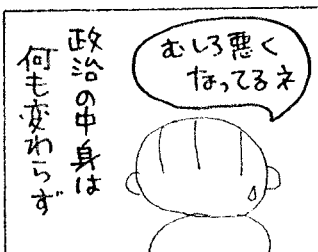 政治の中身は
何も変わらず
むしろ悪く
なってるネ